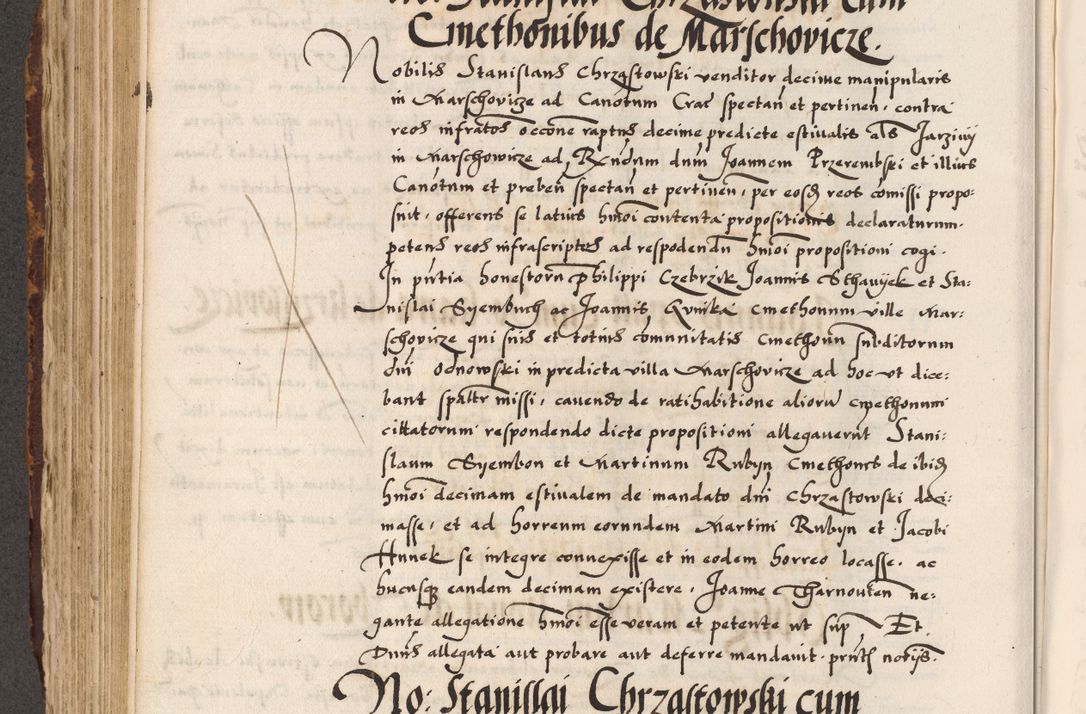 No: Stanislai Chrząstowski cum
Cmethonibus de Marschovicze.
Nobilis Stanislaus Chrząstowski venditor decime manipularis
in Marschovicze ad Canotum Crac̃ spectan̄ et pertinen̄, contra
reos infratos occōne raptus decime predicte estivalis als Jarzinÿ
in Marschowicze ad Rendum dnm̄ Joannem Przerembski et illius
Canōtum et prebeñ spectañ et pertineñ, per eosd reos comissi propo:
suit, offerens se latius hmōi contenta propositionis declaraturum,
petens reos infrascriptos ad respodendū hmōi propositioni cogi.
In pn̄tia honestorū Philippi Czebrzik Joannis Sthawÿek et Sta:
nislai Sÿembuch ac Joannis Kvnika Cmethonum ville Mar:
schovicze qui suis et totius comunitatis Cmethonū subditorum
dnī Ocnowski in predicta villa Marschovicze ad hoc vt dice:
bant spāltr missi, cavendo de ratihabitione aliorū cmethonum
cittatorum respondendo dicte propositioni allegaverūt Stani:
slaum Sÿembon et Martinum Rubÿn Cmethones de ibid
hmōi decimam estivalem de mandato dnī Chrząstowski deci:
masse, et ad horreum eorundem Martini Rubÿn et Jacobi
Hunek se integre connexisse et in eodem horreo locasse, ac
hucusq̃ eandem decimam existere, Joanne Tharnouten ne:
gante allegatione hmōi esse veram et petente ut sup̄ Et
Dnūs allegata aut probare aut deferre mandavit. pn̄t norijs.
No: Stanislai Chrząstowski cum